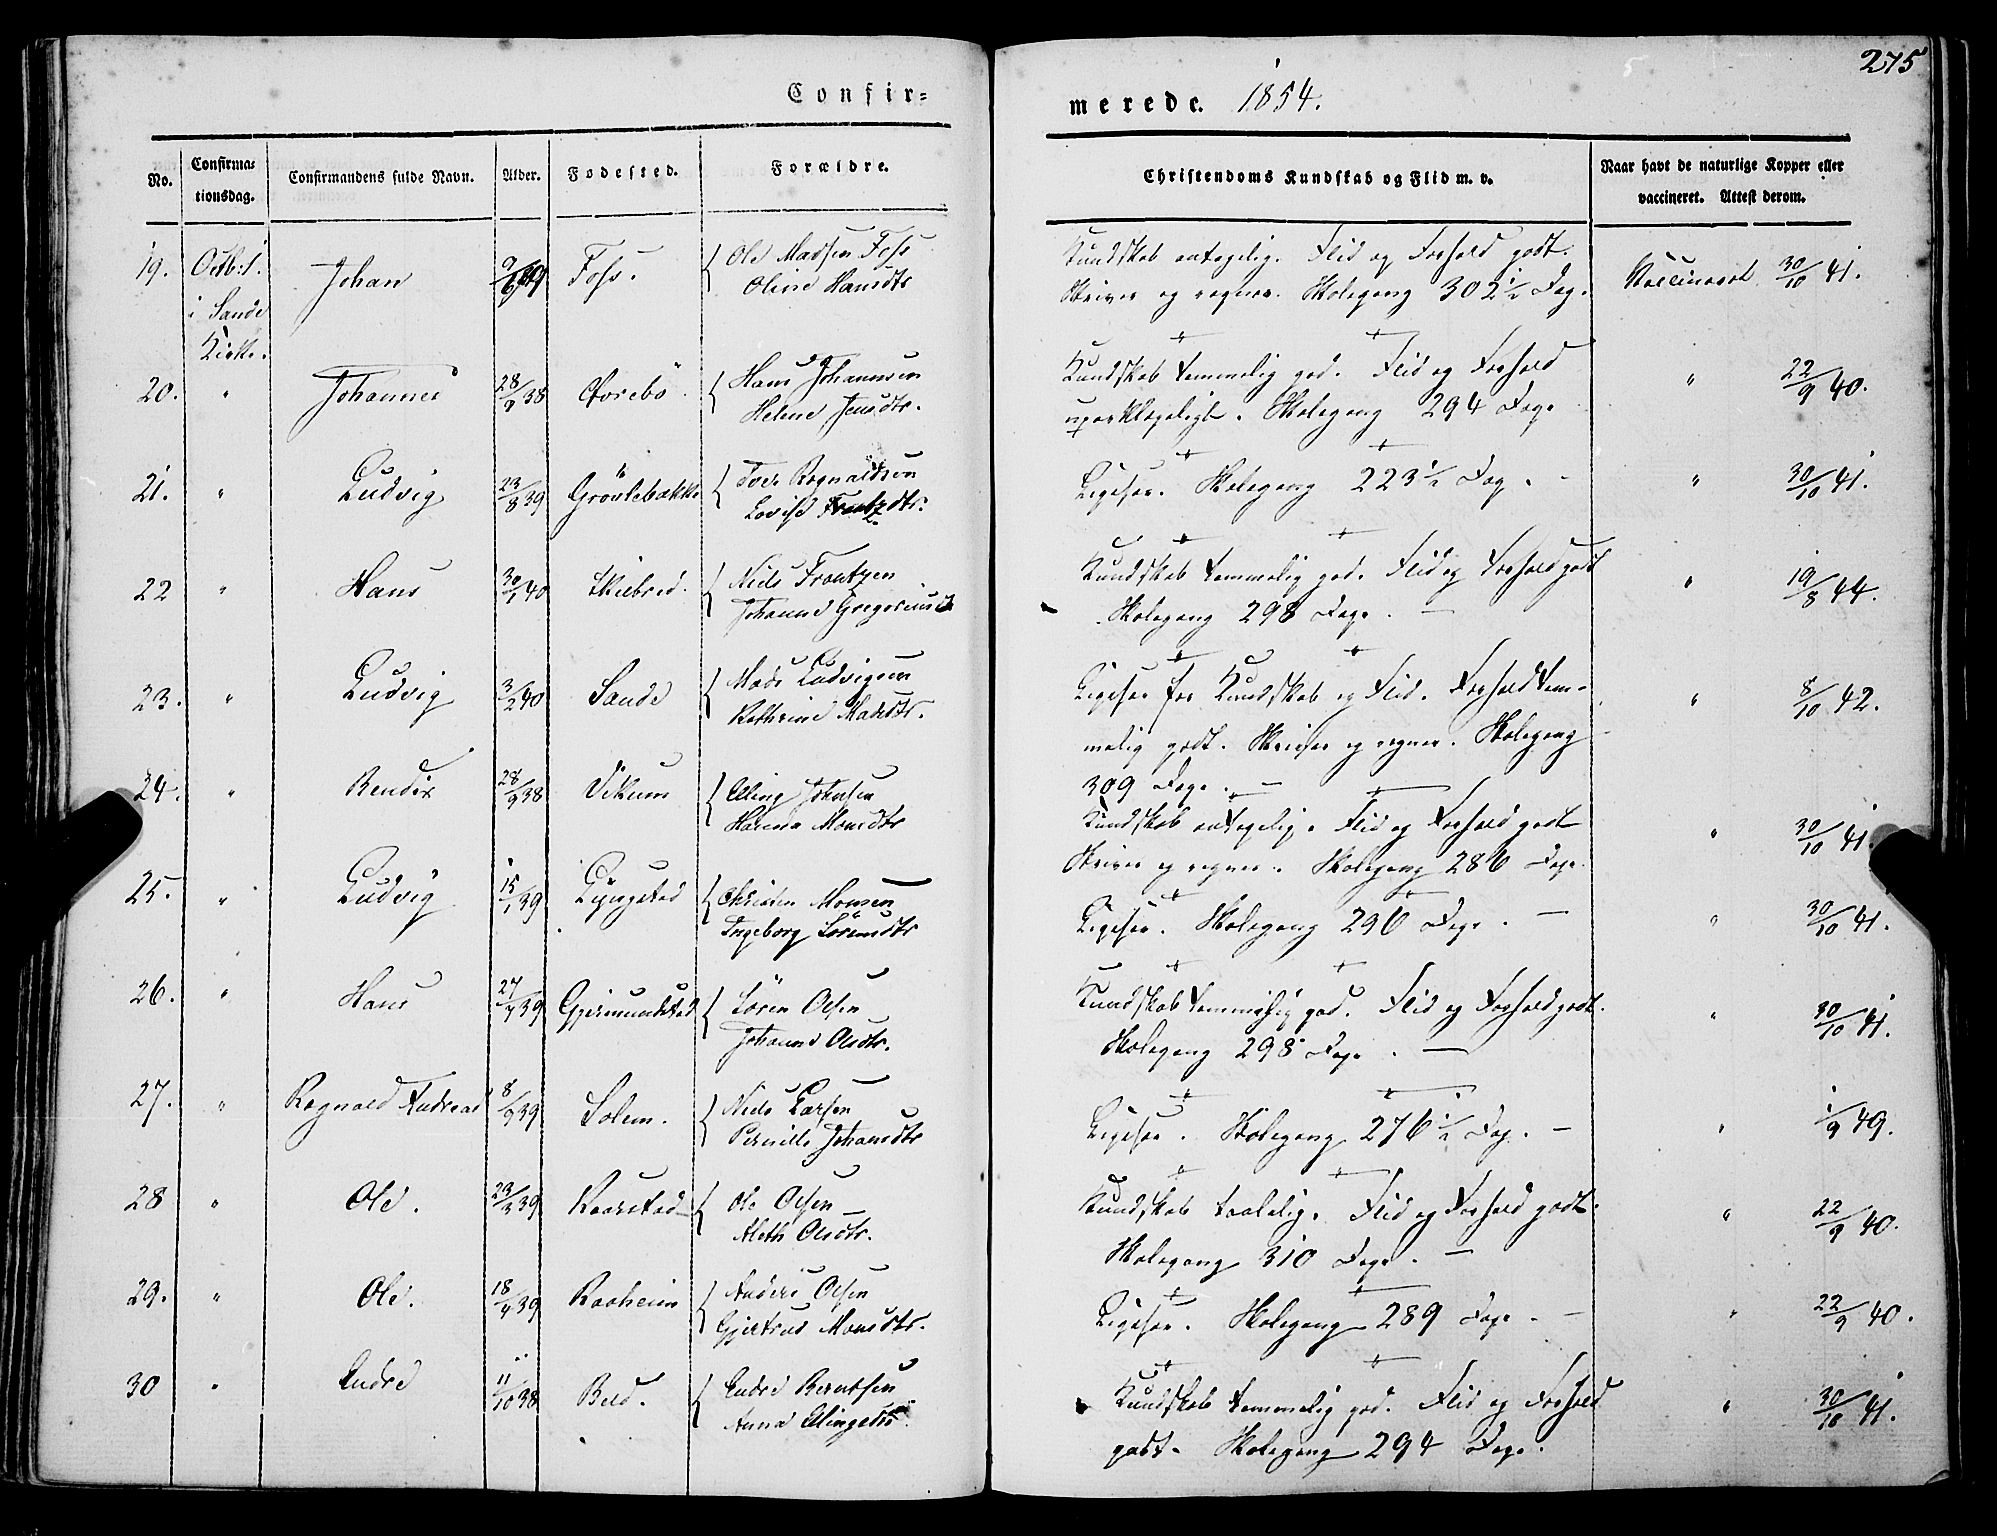 275
Confir=
merede. 1854.
No. Confirmationsdag. Confirmandens fulde Navn. Alder. Fødested. Forældre. Christendoms Kundskab og Flid m. v. Naar havt de naturlige Kopper eller vaccineret. Attest derom.
19. Octb: 1. i Sande Kirke. Johan Foss. Ole Madsen Foss
Oline Hansdtr
Kundskab antagelig. Flid og Forhold godt.
Skriver og regner. Skolegang 302 1/2 Dag. Vaccineret 30/10 41.
20. " Johannes 28/9 38 Hans Johannesen
Helene Jensdtr.
Kundskab temmelig god. Flid og Forhold
upaaklageligt. Skolegang 294 Dage " 22/9 40.
21. " Ludvig 23/8 39 Grövlebække Iver Rognaldsen
Lovise Frantzdtr.
Ligesaa. Skolegang 223 1/2 Dag. - " 30/10 41.
22 " Hans 30/1 40 Skilbred. Niels Frantzen
Johanne
Kundskab temmelig god. Flid og Forhold godt
Skolegang 298 Dage. — " 19/8 44.
23. " Ludvig 3/2 40 Sande Mads Ludvigsen
Kathrine Madsdtr.
Ligesaa for Kundskab og Flid. Forhold tem-
melig godt. Skriver og regner. Skolegang
309 Dage. — " 8/10 42.
24. " Bendix 28/9 38 Vikum Elling Johnsen
Hanna Monsdtr
Kundskab antagelig. Flid og Forhold godt
Skriver og regner. Skolegang 286 Dage. " 30/10 41
25. " Ludvig 15/1 39 Lyngstad Christen Monsen
Ingeborg Sörensdtr
Ligesaa. Skolegang 296 Dage. — " 30/10 41.
26. " Hans 27/4 39 Gjermundstad Sören Olsen
Johanne Olsdtr.
Kundskab temmelig god. Flid og Forhold godt.
Skolegang 298 Dage. — " 30/10 41.
27. " Rognald Andreas 8/9 39 Solem. Niels Larsen
Pernille Johansdtr
Ligesaa. Skolegang 276 1/2 Dag. — " 1/9 49.
28 " Ole. 23/3 39 Kaarstad Ole Olsen
Aleth Olsdtr.
Kundskab taalelig. Flid og Forhold godt.
Skolegang 310 Dage. — " 22/9 40.
29. " Ole. 18/4 39 Raaheim Anders Olsen
Gjertrud Monsdtr.
Ligesaa. Skolegang 289 Dage. — " 22/9 40.
30 " Endre 11/10 38 Bell. Endre Berntsen
Anna Ellingsdtr
Kundskab temmelig god. Flid og Forhold
godt. Skolegang 294 Dage. " 30/10 41.